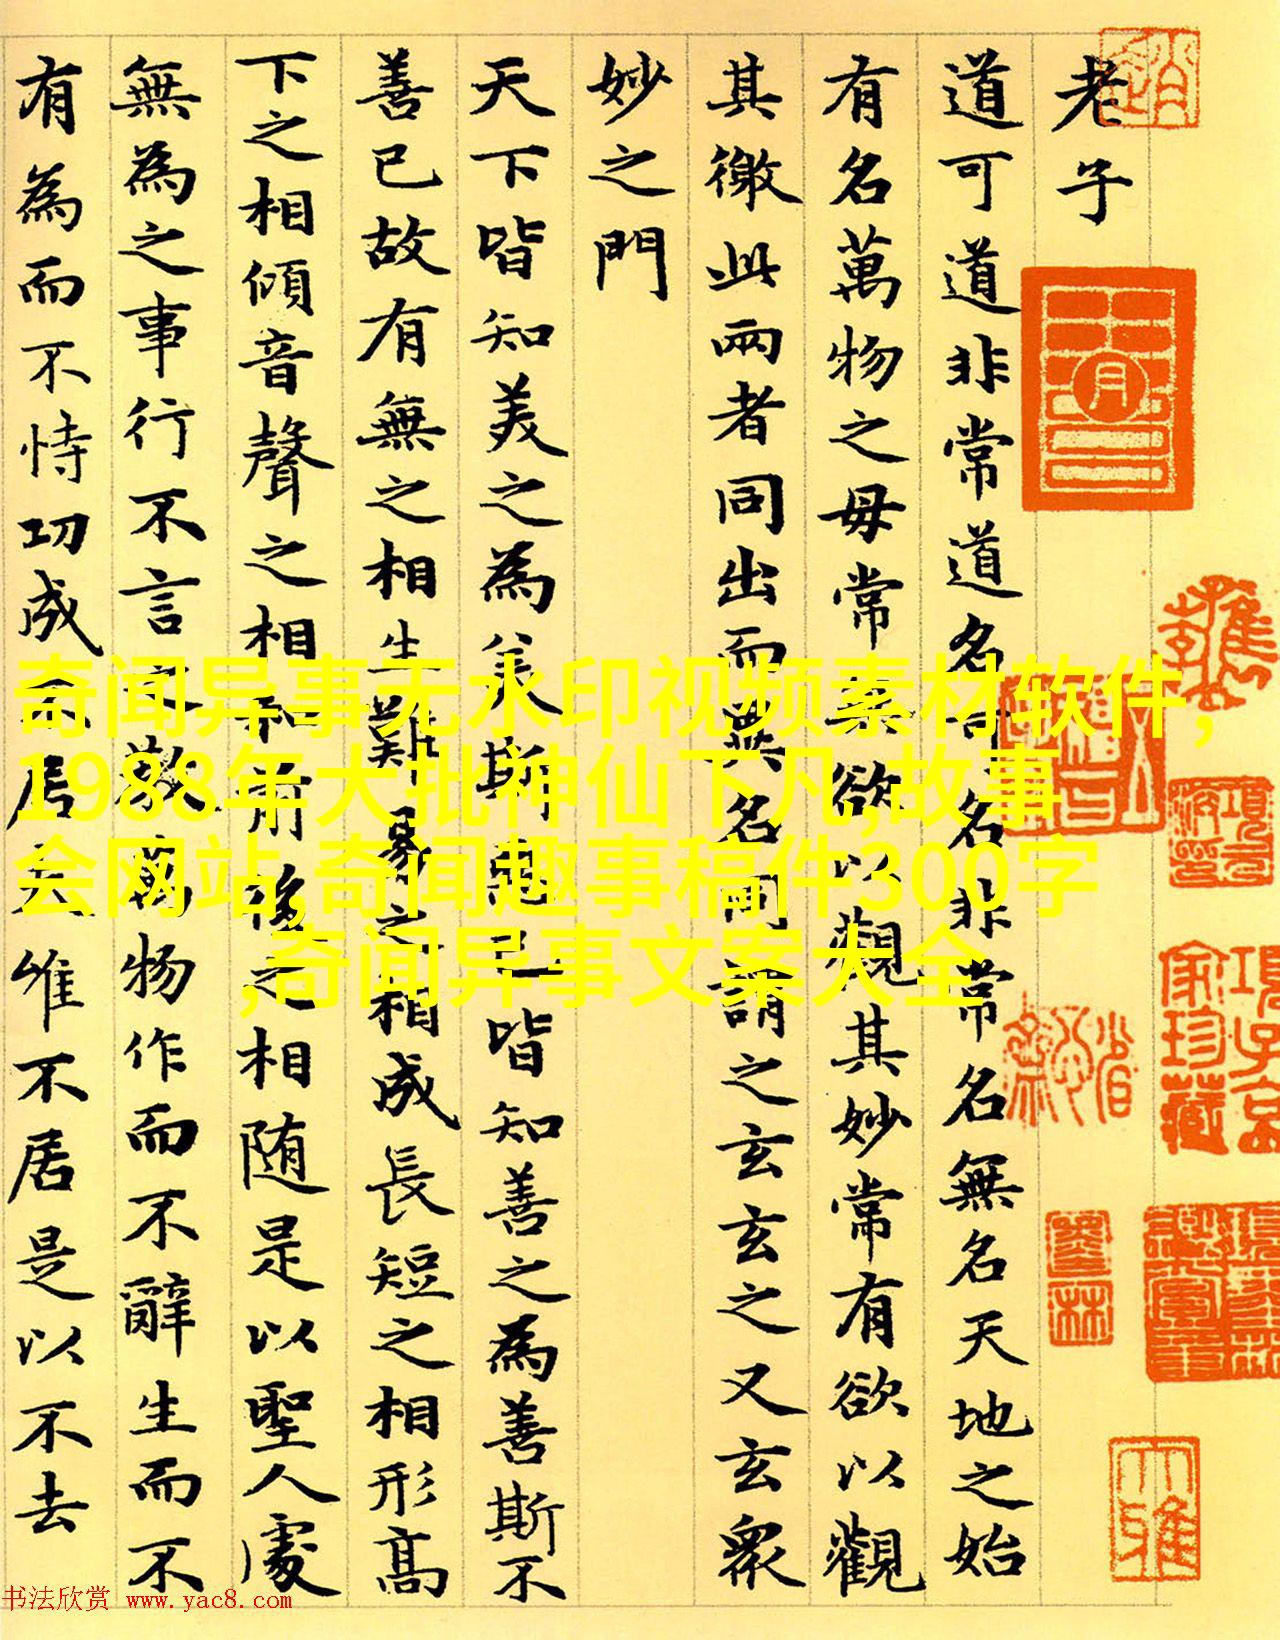 老子
道可道非常道名可名非常名無名天地之始
有名萬物之母常無欲以觀其妙常有欲以觀
其徼此兩者同出而異名同謂之玄玄之又玄衆
妙之門
天下皆知美之為美斯惡已皆知善之為善斯不
善已故有無之相生難易之相成長短之相形高
下之相傾音聲之相和前後之相随是以聖人處
無為之事行不言之教萬物作而不辭生而不
有為而不恃功成不居夫惟不居是以不去
項子京
家珍藏
大雅
奇闻异事无水印视频素材软件,
1988年大批神仙下凡,故事
会网站,奇闻趣事稿件300字
,奇闻异事文案大全
书法欣赏 www.yac8.com